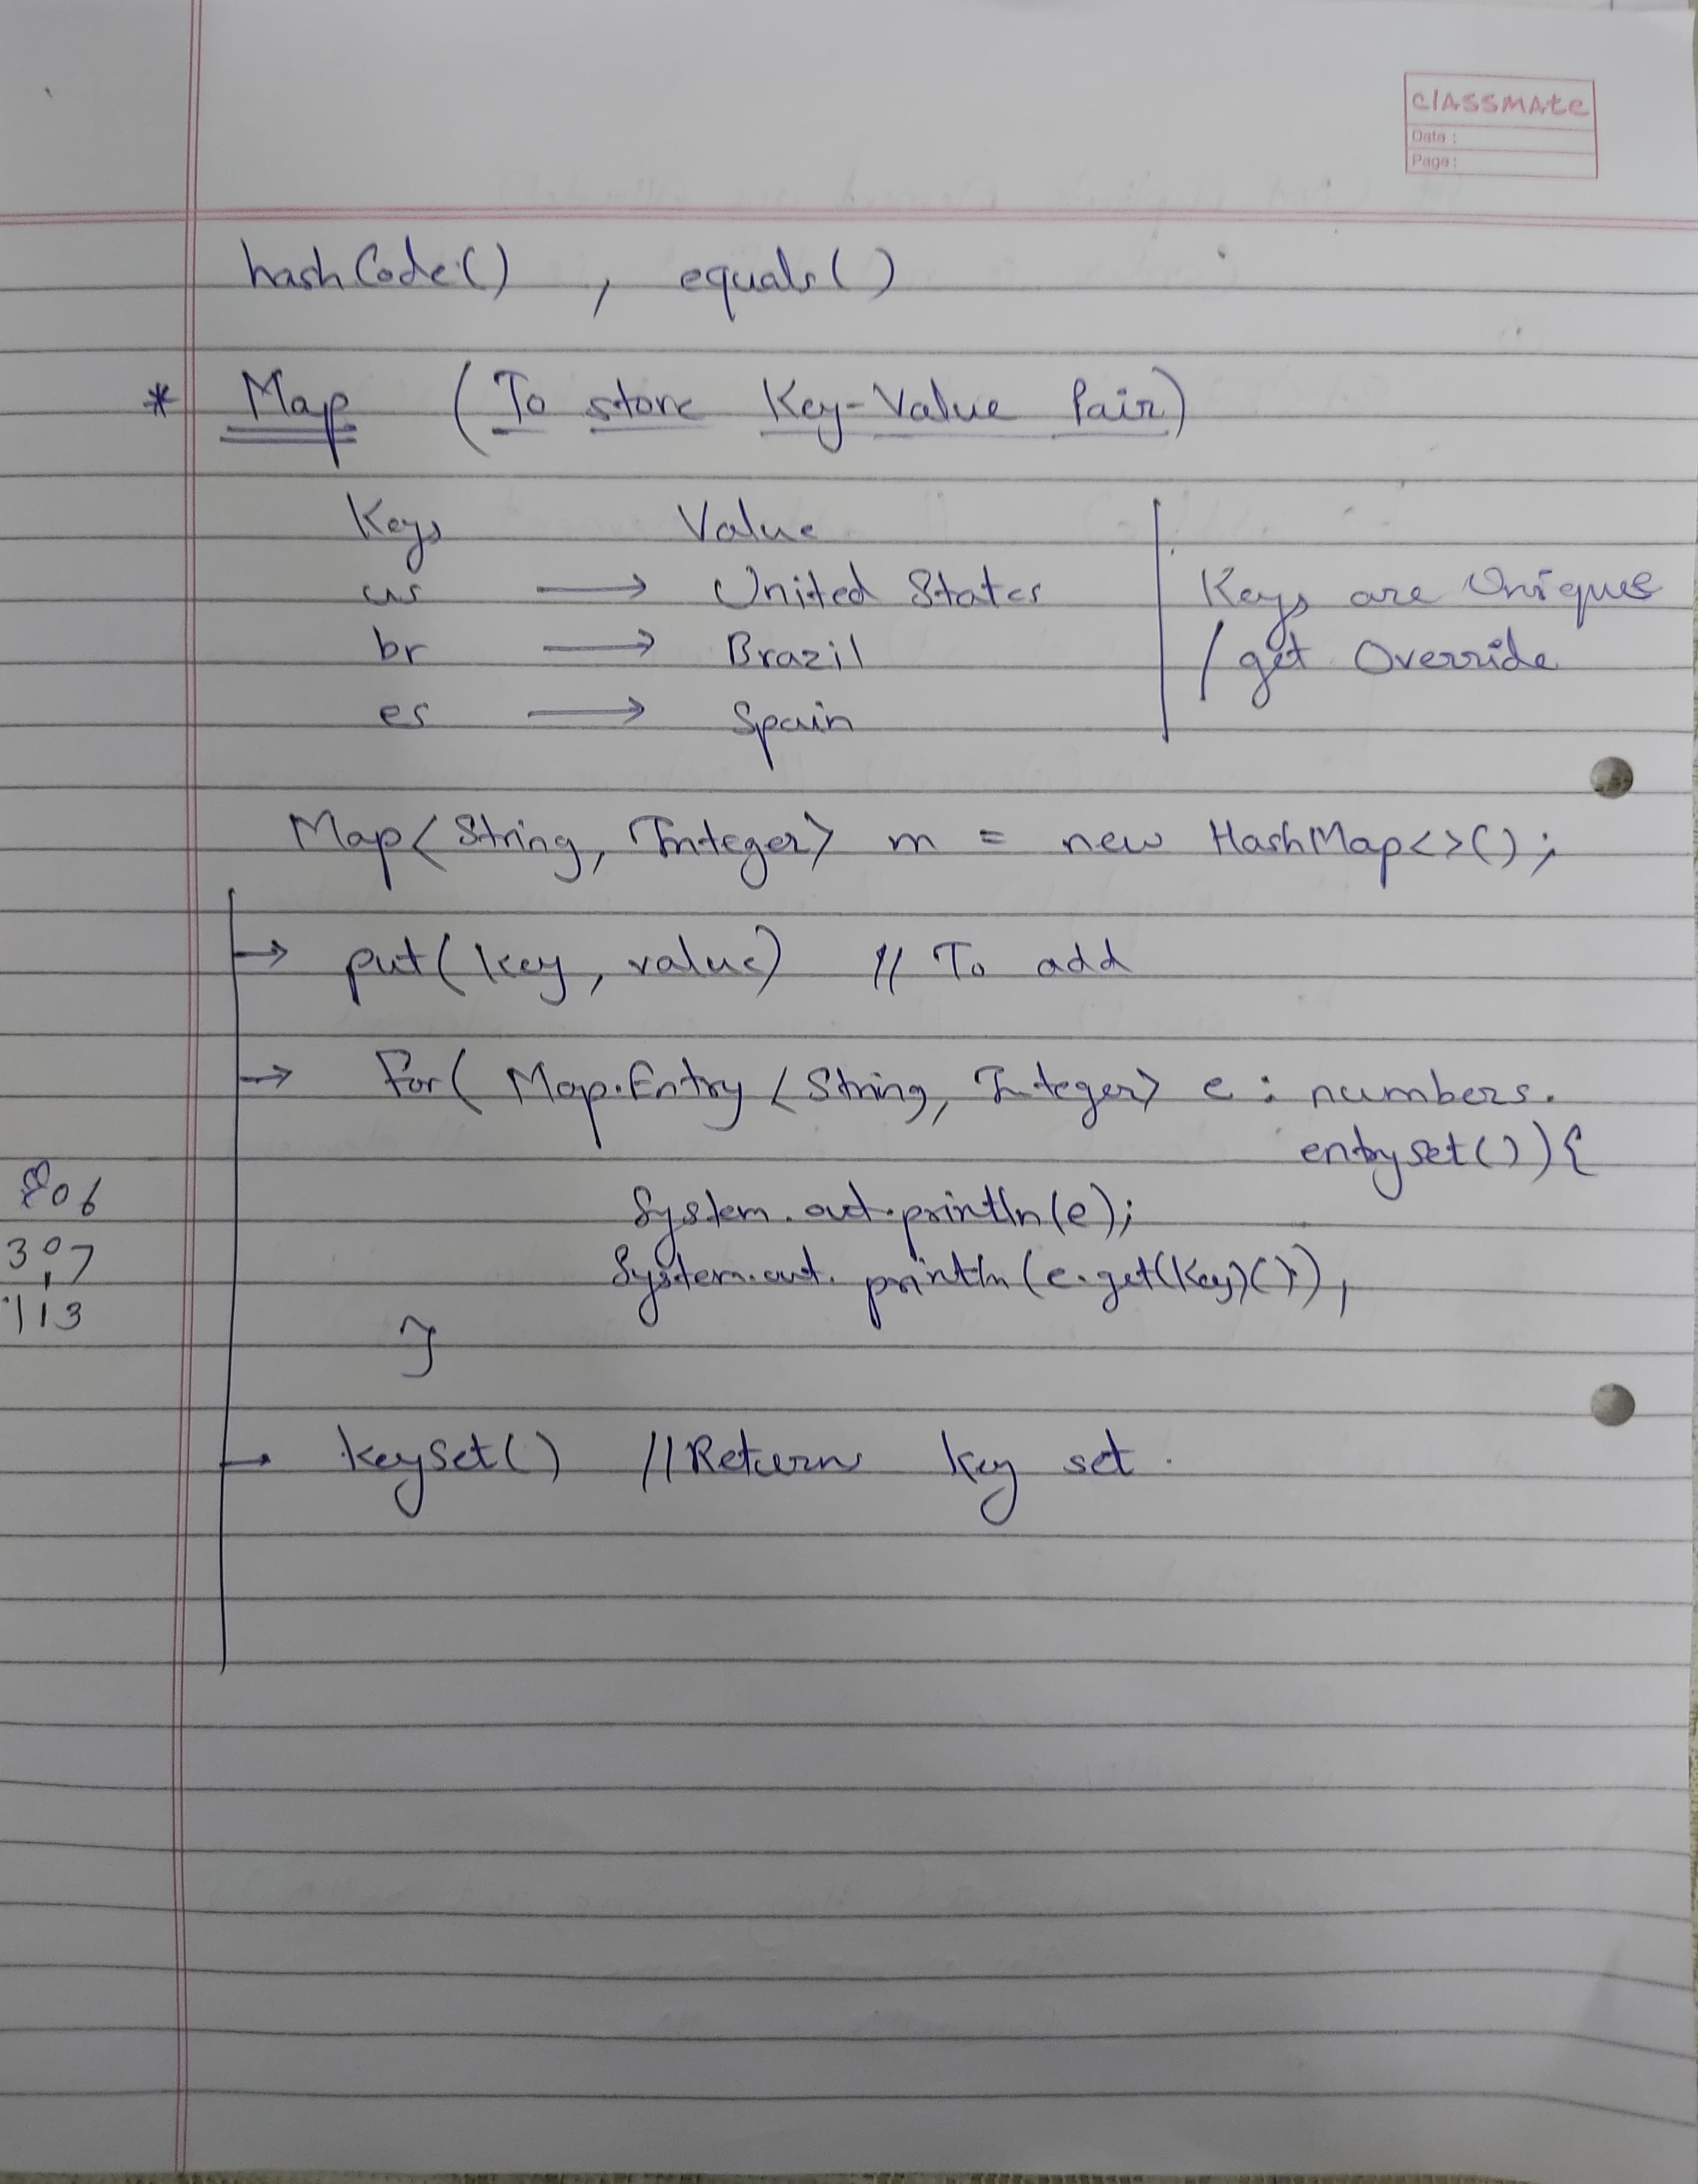 classmate
Date :
Page :
hashCode() , equals()
* Map (To store Key-Value Pair)
Keys Value
us → United States
br → Brazil
es → Spain
Keys are Uniques
/ get Override
Map<String, Integer> m = new HashMap<>();
→ put(key, value) // To add
→ For( Map.Entry <String, Integer> e : numbers.
entryset()){
System.out.println(e);
System.out.println(e.get(Key)());
}
→ keyset() //Return key set.
307
113